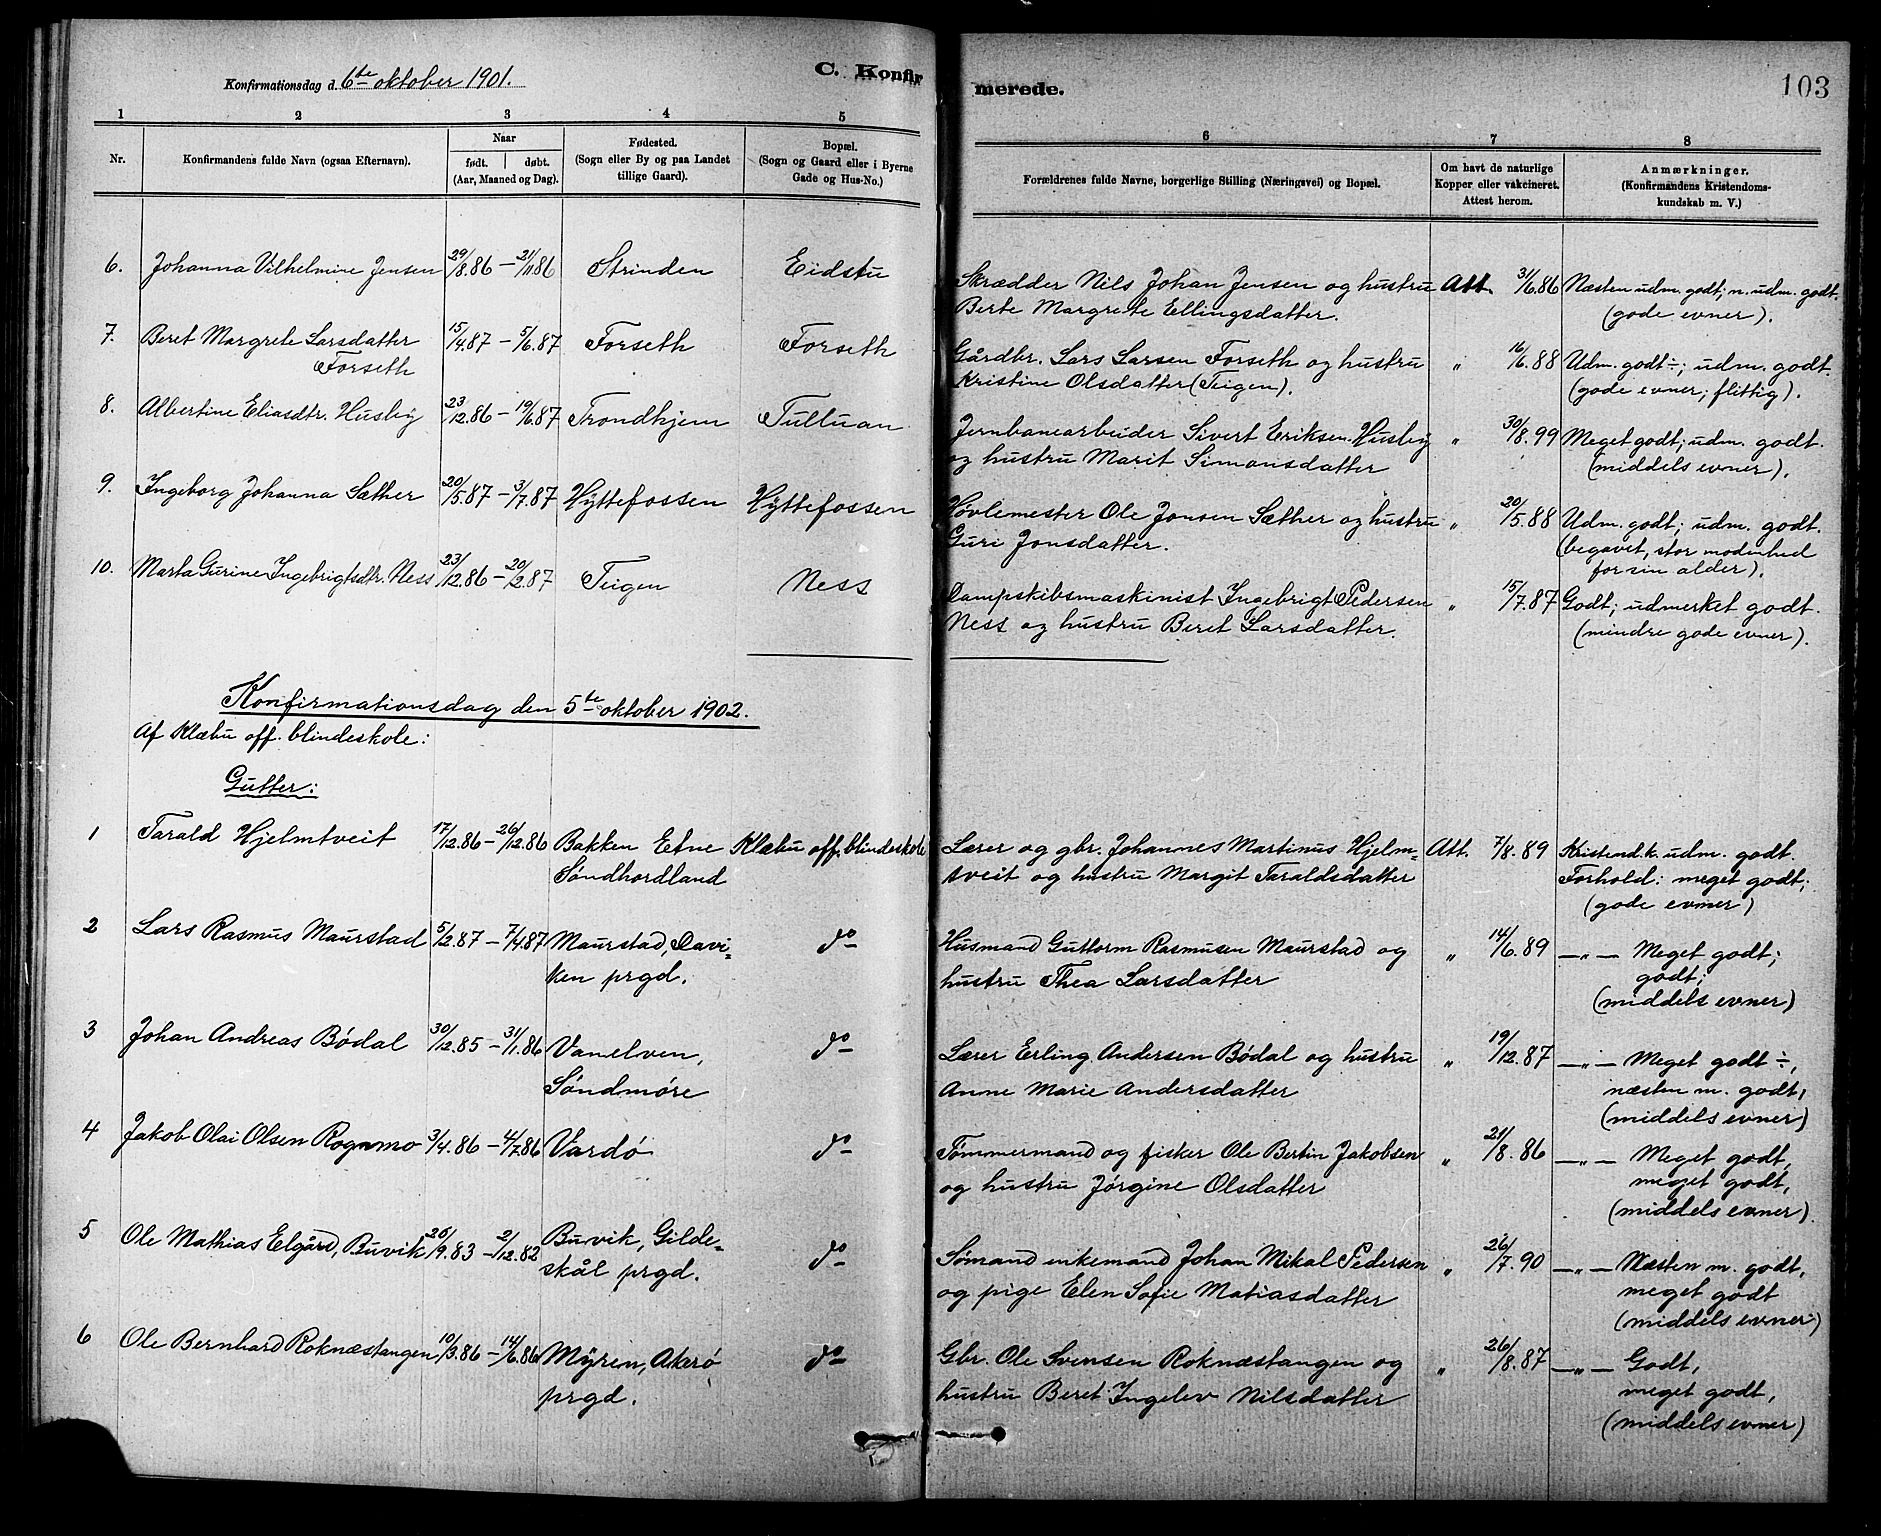 Konfirmationsdag d. 6te oktober 1901.
C. Konfirmerede.
103
1 2 3 4 5 6 7 8
Nr.
Konfirmandens fulde Navn (ogsaa Efternavn).
Naar
født. døbt.
(Aar, Maaned og Dag).
Fødested.
(Sogn eller By og paa Landet
tillige Gaard).
Bopæl.
(Sogn og Gaard eller i Byerne
Gade og Hus-No.)
Forældrenes fulde Navne, borgerlige Stilling (Næringsvei) og Bopæl.
Om havt de naturlige
Kopper eller vakcineret.
Attest herom.
Anmærkninger.
(Konfirmandens Kristendoms-
kundskab m. V.)
6. Johanna Vilhelmine Jensen 29/8.86 – 21/11.86 Strinden Eidstu
Skrædder Nils Johan Jensen og hustru Att. 31/6.86 Næsten udm. godt; n. udm. godt.
Berte Margrete Ellingsdatter. (gode evner).
7. Beret Margrete Larsdatter 15/4.87 – 5/6.87 Forseth Forseth
Forseth
Gårdbr. Lars Larsen Forseth og hustru " 16/6.88 Udm. godt÷; udm. godt.
Kristine Olsdatter (Teigen). (gode evner; flittig).
8. Albertine Eliasdtr. Husby 23/12.86 – 19/6.87 Trondhjem Tulluan
Jernbanearbeider Sivert Eriksen Husby " 30/8.99 Meget godt; udm. godt.
og hustru Marit Simonsdatter (middels evner).
9. Ingeborg Johanna Sæther 20/5.87 – 3/7.87 Hyttefossen Hyttefossen
Høvlemester Ole Jonsen Sæther og hustru " 20/5.88 Udm. godt; udm. godt.
Guri Jonsdatter. (begavet, stor modenhed
for sin alder).
10. Marta Gurine Ingebrigtsdtr. Ness 23/12.86 – 20/2.87 Teigen Ness
Dampskibsmaskinist Ingebrigt Pedersen " 15/7.87 Godt; udmerket godt.
Ness og hustru Beret Larsdatter. (mindre gode evner).
Konfirmationsdag den 5te oktober 1902.
Af Klæbu off. blindeskole:
Gutter:
1 Tarald Hjelmtveit 17/12.86 – 26/12.86 Bakken Etne Klæbu off. blindeskole
Søndhordland
Lærer og gbr. Johannes Martinus Hjelm= Att. 7/8.89 Kristend.k. udm. godt.
tveit og hustru Margit Taraldsdatter Forhold: meget godt;
(gode evner)
2 Lars Rasmus Maurstad 5/2.87 – 7/4.87 Maurstad, Davi= do
ken prgd.
Husmand Guttorm Rasmusen Maurstad og " 14/6.89 –"– Meget godt;
hustru Thea Larsdatter godt;
(middels evner)
3 Johan Andreas Bødal 30/12.85 – 31/1.86 Vanelven, do
Søndmøre
Lærer Erling Andersen Bødal og hustru " 19/12.87 –"– Meget godt÷,
Anne Marie Andersdatter næsten m. godt,
(middels evner)
4 Jakob Olai Olsen Rognmo 3/4.86 – 4/7.86 Vardø do
Tømmermand og fisker Ole Bertin Jakobsen " 21/8.86 –"– Meget godt,
og hustru Jørgine Olsdatter meget godt,
(middels evner)
5 Ole Mathias Elgård, Buvik 26/9.83 – 2/12.82 Buvik, Gilde= do
skål prgd.
Sømand enkemand Johan Mikal Pedersen " 26/7.90 –"– Næsten m. godt,
og pige Elen Sofie Matiasdatter meget godt
(middels evner)
6 Ole Bernhard Roknæstangen 10/3.86 – 14/6.86 Myren, Akerø do
prgd.
Gbr. Ole Svensen Roknæstangen og " 26/8.87 –"– Godt,
hustru Beret Ingelev Nilsdatter meget godt,
(middels evner)